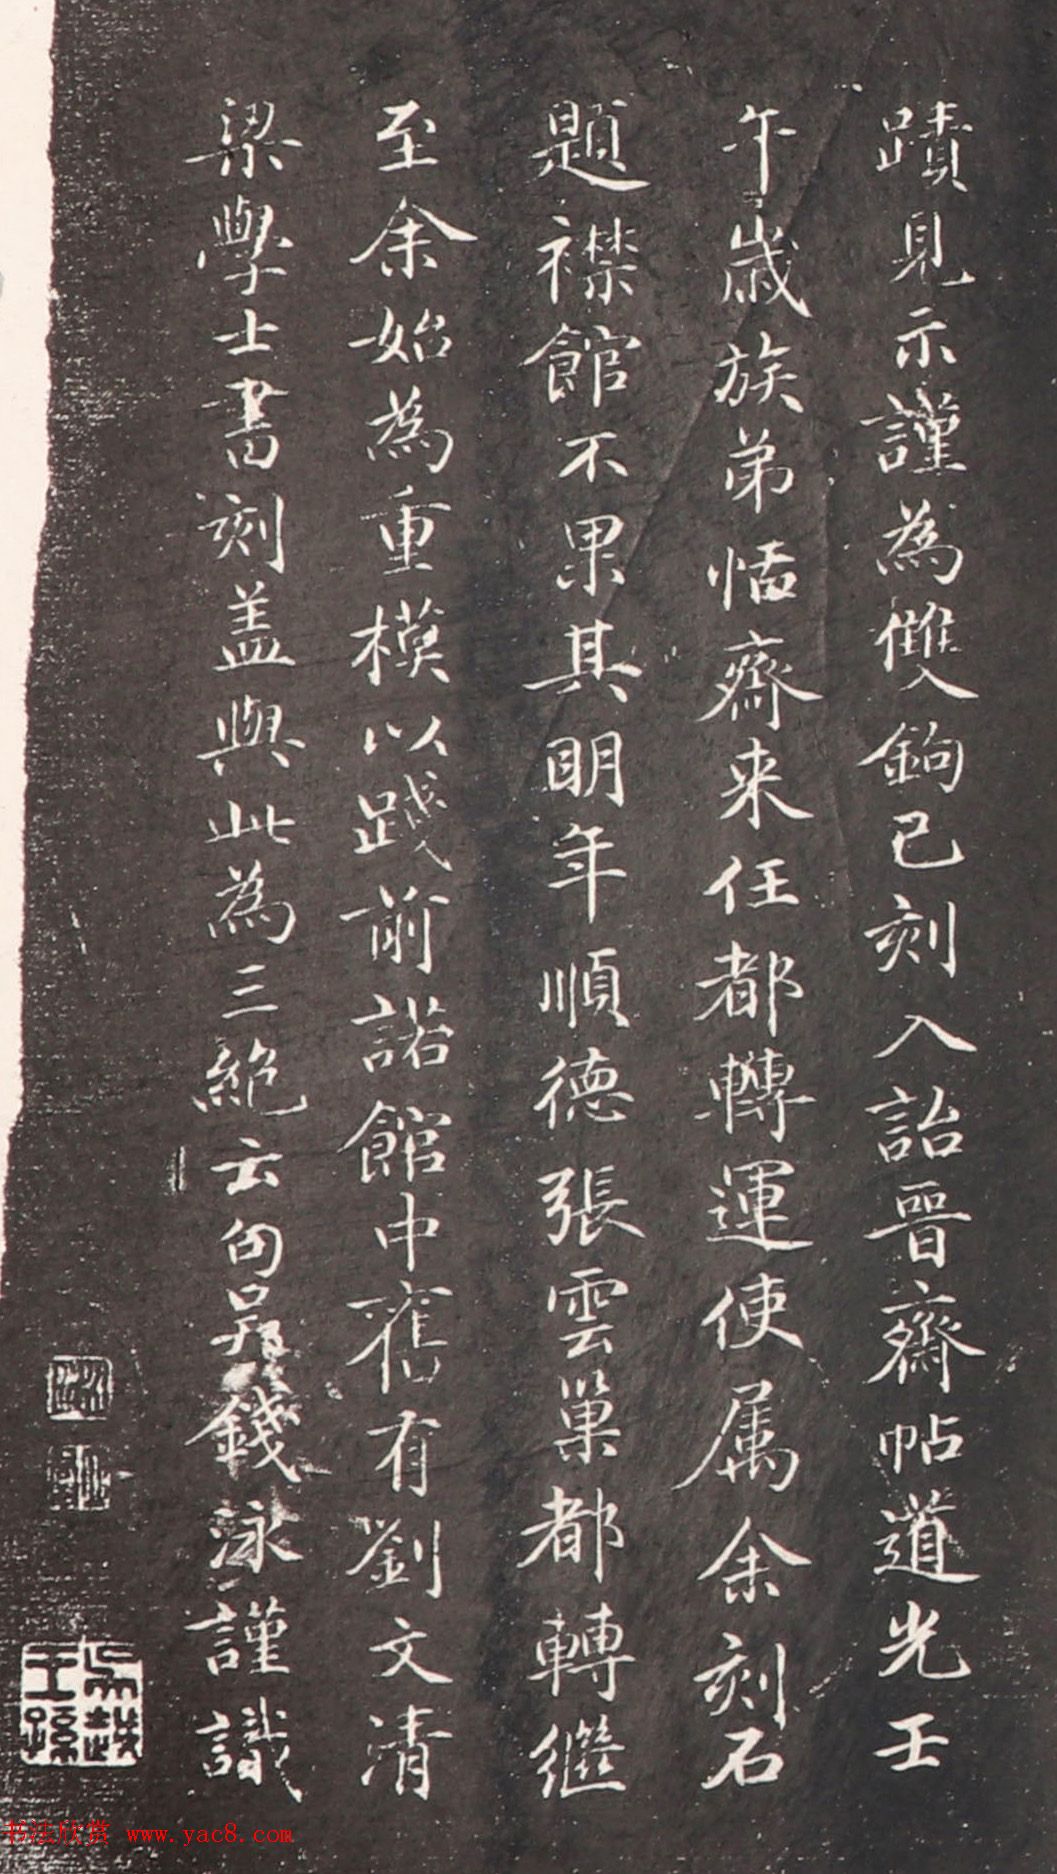 蹟見示謹為雙鉤已刻入詒晉齋帖道光壬
午歲族弟恬齋来任都轉運使属余刻石
題襟館不果其明年順德張雲巢都轉継
至余始為重模以踐前諾館中舊有劉文清
梁學士書刻盖與此為三絶云勾吳錢泳謹識
书法欣赏 www.yac8.com